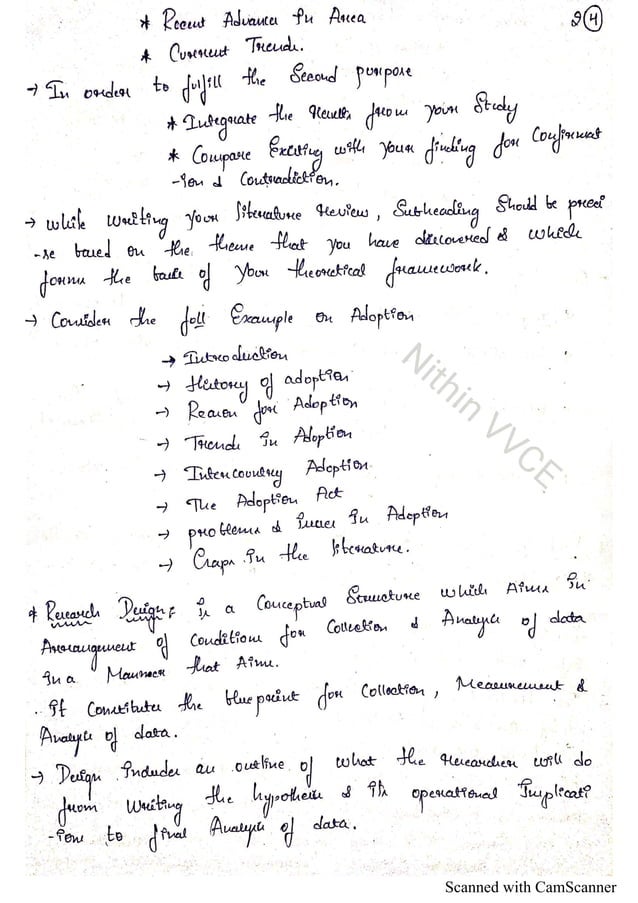 * Recent Advances In Area
24
* Current Trends.
→ In order to fulfill the Second purpose
* Integrate the results from your Study
* Compare Existing with your finding for Confirmat
-ion & Contradiction.
→ while writing your literature review, Subheading Should be preci
-se based on the theme that you have discovered & which
forms the basis of your theoretical framework.
→ Consider the foll Example on Adoption
→ Introduction
→ History of adoption
→ Reason for Adoption
→ Trends in Adoption
→ Intercountry Adoption
→ The Adoption Act
→ problems & issues in Adoption
→ Gaps in the literature.
Nithin VVCE
* Research Design: is a Conceptual Structure which Aims in
Arrangement of Conditions for Collection & Analysis of data
in a Manner that Aims.
. It Constitutes the blueprint for Collection, Measurement &
Analysis of data.
→ Design includes an outline of what the researcher will do
from writing the hypothesis & its operational Implicati
-ons to final Analysis of data.
Scanned with CamScanner